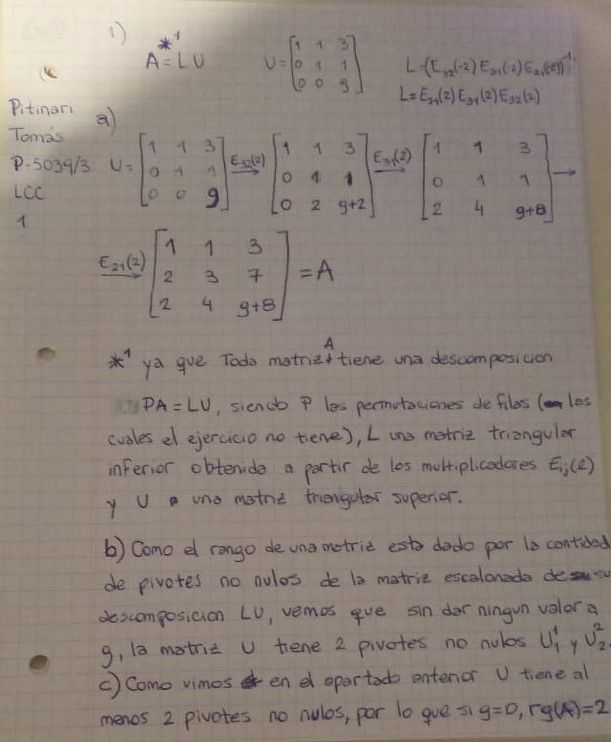 1)
*1
A = LU
U = [1 1 3
0 1 1
0 0 g]
L = (E32(-2) E31(-2) E21(-2))^-1
L = E21(2) E31(2) E32(2)
Pitinari
Tomás
P-5039/3
LCC
1
a)
U = [1 1 3; 0 1 1; 0 0 g] E32(2)→ [1 1 3; 0 1 1; 0 2 g+2] E31(2)→ [1 1 3; 0 1 1; 2 4 g+8] →
E21(2)→ [1 1 3; 2 3 7; 2 4 g+8] = A
*1 ya que Toda matriz A tiene una descomposicion
PA = LU, siendo P las permutaciones de filas (las
cuales el ejercicio no tiene), L una matriz triangular
inferior obtenida a partir de los multiplicadores Eij(l)
y U una matriz triangular superior.
b) Como el rango de una matriz esta dado por la cantidad
de pivotes no nulos de la matriz escalonada de su
descomposicion LU, vemos que sin dar ningun valor a
g, la matriz U tiene 2 pivotes no nulos U1^1 y U2^2.
c) Como vimos en el apartado anterior U tiene al
menos 2 pivotes no nulos, por lo que si g=0, rg(A)=2